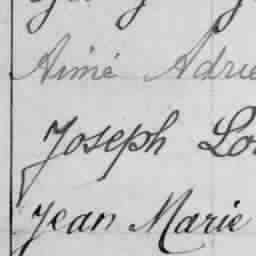 Aimé Adrie
Joseph Lo
Jean Marie